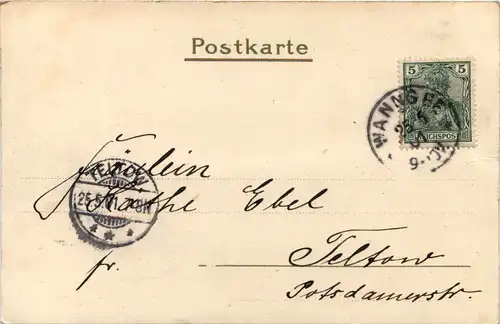 Postkarte
5 5
REICHSPOST
WANNSEE
TELTOW
25.5.01
Fräulein
Käthe Ebel
Teltow
fr. Potsdamerstr.